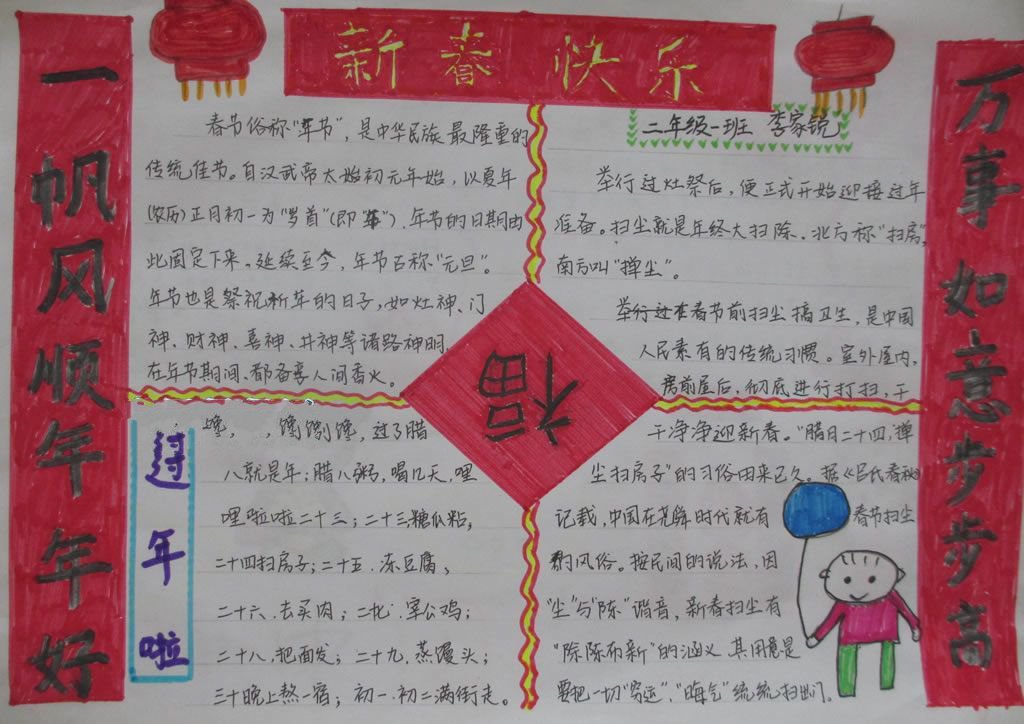 新春快乐
一帆风顺年年好
万事如意步步高
春节俗称“年节”，是中华民族最隆重的
传统佳节。自汉武帝太始初元年始，以夏年
(农历)正月初一为“岁首”(即“年”)，年节的日期由
此固定下来，延续至今，年节古称“元旦”。
年节也是祭祝新年的日子，如灶神、门
神、财神、喜神、井神等诸路神明，
在年节期间，都备享人间香火。
二年级一班 李家锐
举行过灶祭后，便正式开始迎接过年
准备。扫尘就是年终大扫除，北方称“扫房”，
南方叫“掸尘”。
举行过在春节前扫尘搞卫生，是中国
人民素有的传统习惯。室外屋内，
房前屋后，彻底进行打扫，干
福
过年啦
馋，，馋馋，过了腊
八就是年；腊八粥，喝几天，哩
哩啦啦二十三；二十三糖瓜粘，
二十四扫房子；二十五．冻豆腐；
二十六．去买肉；二七．宰公鸡；
二十八，把面发；二十九，蒸馒头；
三十晚上熬一宿；初一．初二满街走。
干净净迎新春。“腊日二十四，掸
尘扫房子”的习俗由来已久。据《吕氏春秋》
记载，中国在尧舜时代就有 春节扫尘
的风俗。按民间的说法，因
“尘”与“陈”谐音，新春扫尘有
“除陈布新”的涵义 其用意是
要把一切“穷运”、“晦气”统统扫出门。